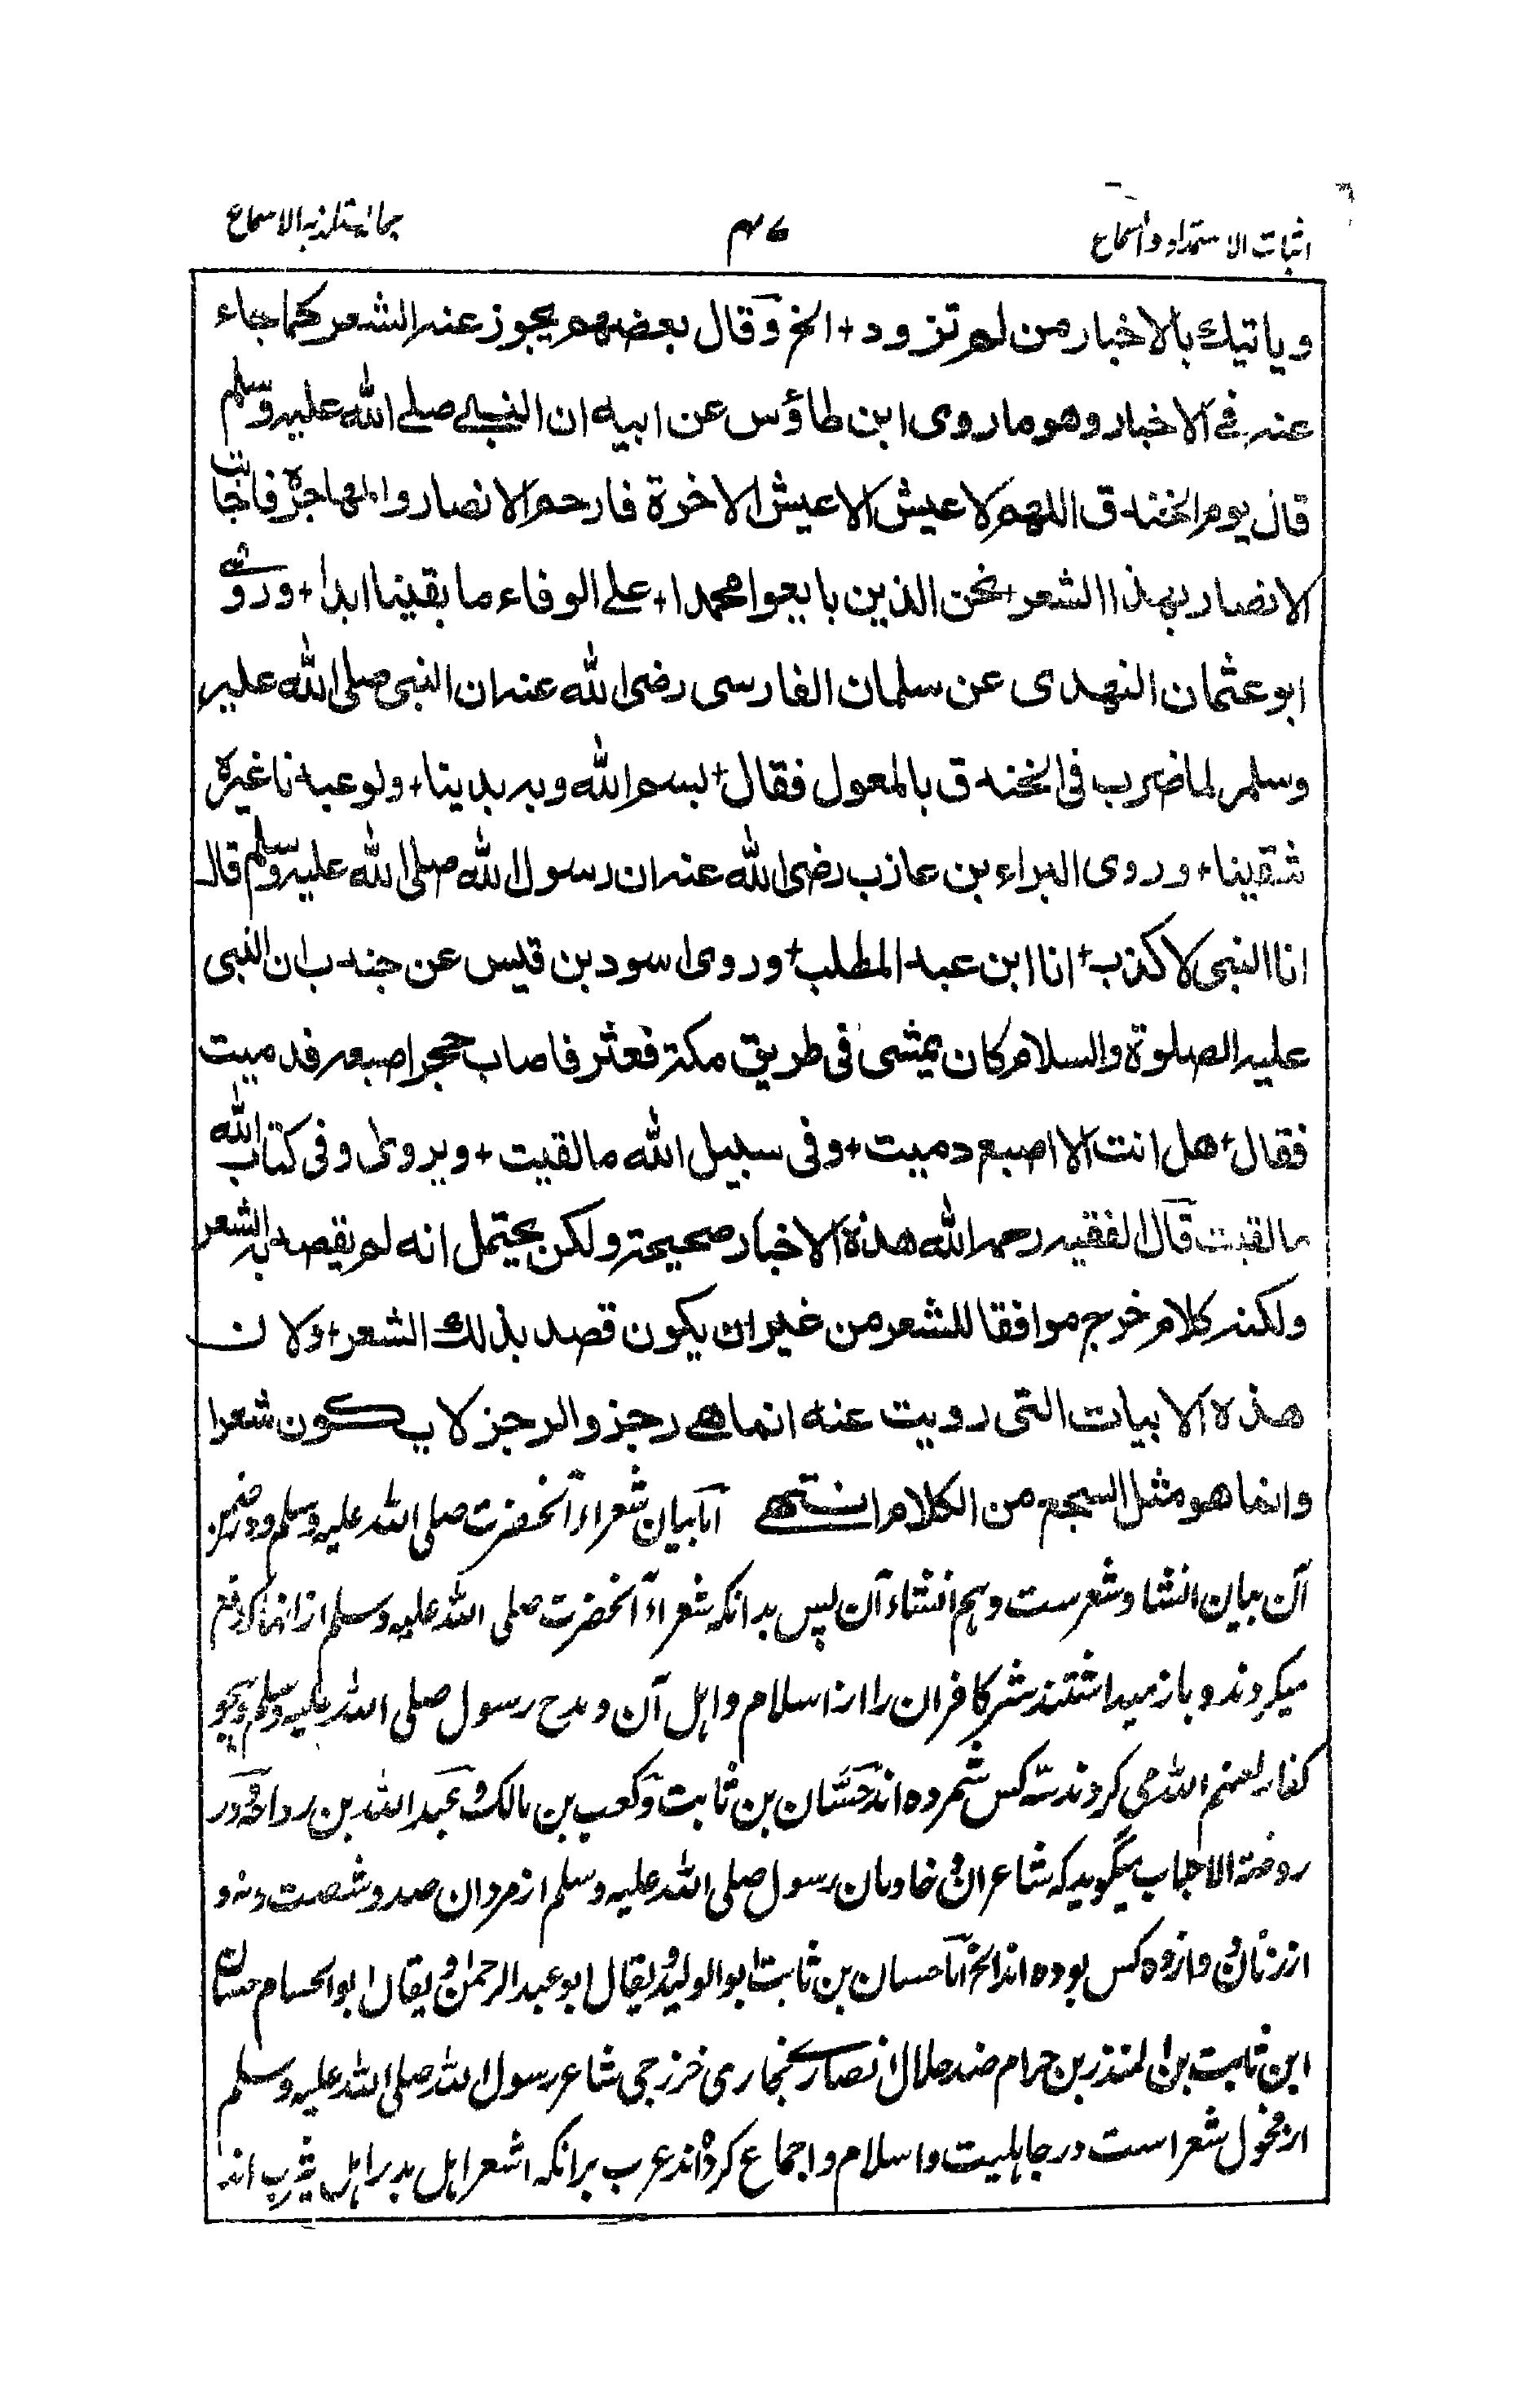 اثبات الاستمداد واسماع
۴۷
بما یستلذ به الاسماع
وياتيك بالاخبار من لم تزود + الخ وقال بعضهم يجوز عنه الشعر كما جاء
عنه في الاخبار وهو ما روى ابن طاؤس عن ابيه ان النبي صلے الله عليه وسلم
قال يوم الخندق اللهم لا عيش الا عيش الاخرة فارحم الانصار والمهاجرة فاجابت
الانصار بهذا الشعر + نحن الذين بايعوا محمدا + على الوفاء ما بقينا ابدا + وروى
ابو عثمان النهدى عن سلمان الفارسى رضى الله عنه ان النبى صلى الله عليه
وسلم لما ضرب فى الخندق بالمعول فقال + بسم الله وبه بدينا + ولو عبدنا غيره
شقينا + وروى البراء بن عازب رضى الله عنه ان رسول الله صلى الله عليه وسلم قال
انا النبى لا كذب + انا ابن عبد المطلب + وروى اسود بن قيس عن جندب ان النبى
عليه الصلوة والسلام كان يمشى فى طريق مكة فعثر فاصاب حجر اصبعه فدميت
فقال + هل انت الا اصبع دميت + وفى سبيل الله ما لقيت + ويروى وفى كتاب الله
ما لقيت قال الفقيه رحمه الله هذه الاخبار صحيحة ولكن يحتمل انه لم يقصد به الشعر
ولكنه كلام خرج موافقا للشعر من غير ان يكون قصد بذلك الشعر + ولان
هذه الابيات التى رويت عنه انما هى رجز والرجز لا يكون شعرا
وانما هو مثل السجع من الكلام انتهے اما بیان شعراء آنحضرت صلی الله علیه وسلم و در ضمن
آن بیان انشاد شعرست و هم انشاء آن پس بدانکه شعراء آنحضرت صلی الله علیه وسلم از انها که دفع
میکردند و باز میداشتند شر کافران را از اسلام و اہل آن و مدح رسول صلی الله علیه وسلم و هجو
کفار لعنهم الله می کردند سه کس شمرده اند حسّان بن ثابت و کعب بن مالک و عبد الله بن رواحه و در
روضة الاحباب میگوید که شاعران و خادمان رسول صلی الله علیه وسلم از مردان صد و شصت و نه و
از زنان دوازده کس بوده اند الخ اما حسان بن ثابت ابو الولید و یقال ابو عبد الرحمن و یقال ابو الحسام حسان
ابن ثابت بن المنذر بن حرام ضد حلال انصاری نجاری خزرجی شاعر رسول الله صلی الله علیه وسلم
از فحول شعراست در جاہلیت و اسلام و اجماع کرده اند عرب برانکه اشعر اہل مدر اہل یثرب اند